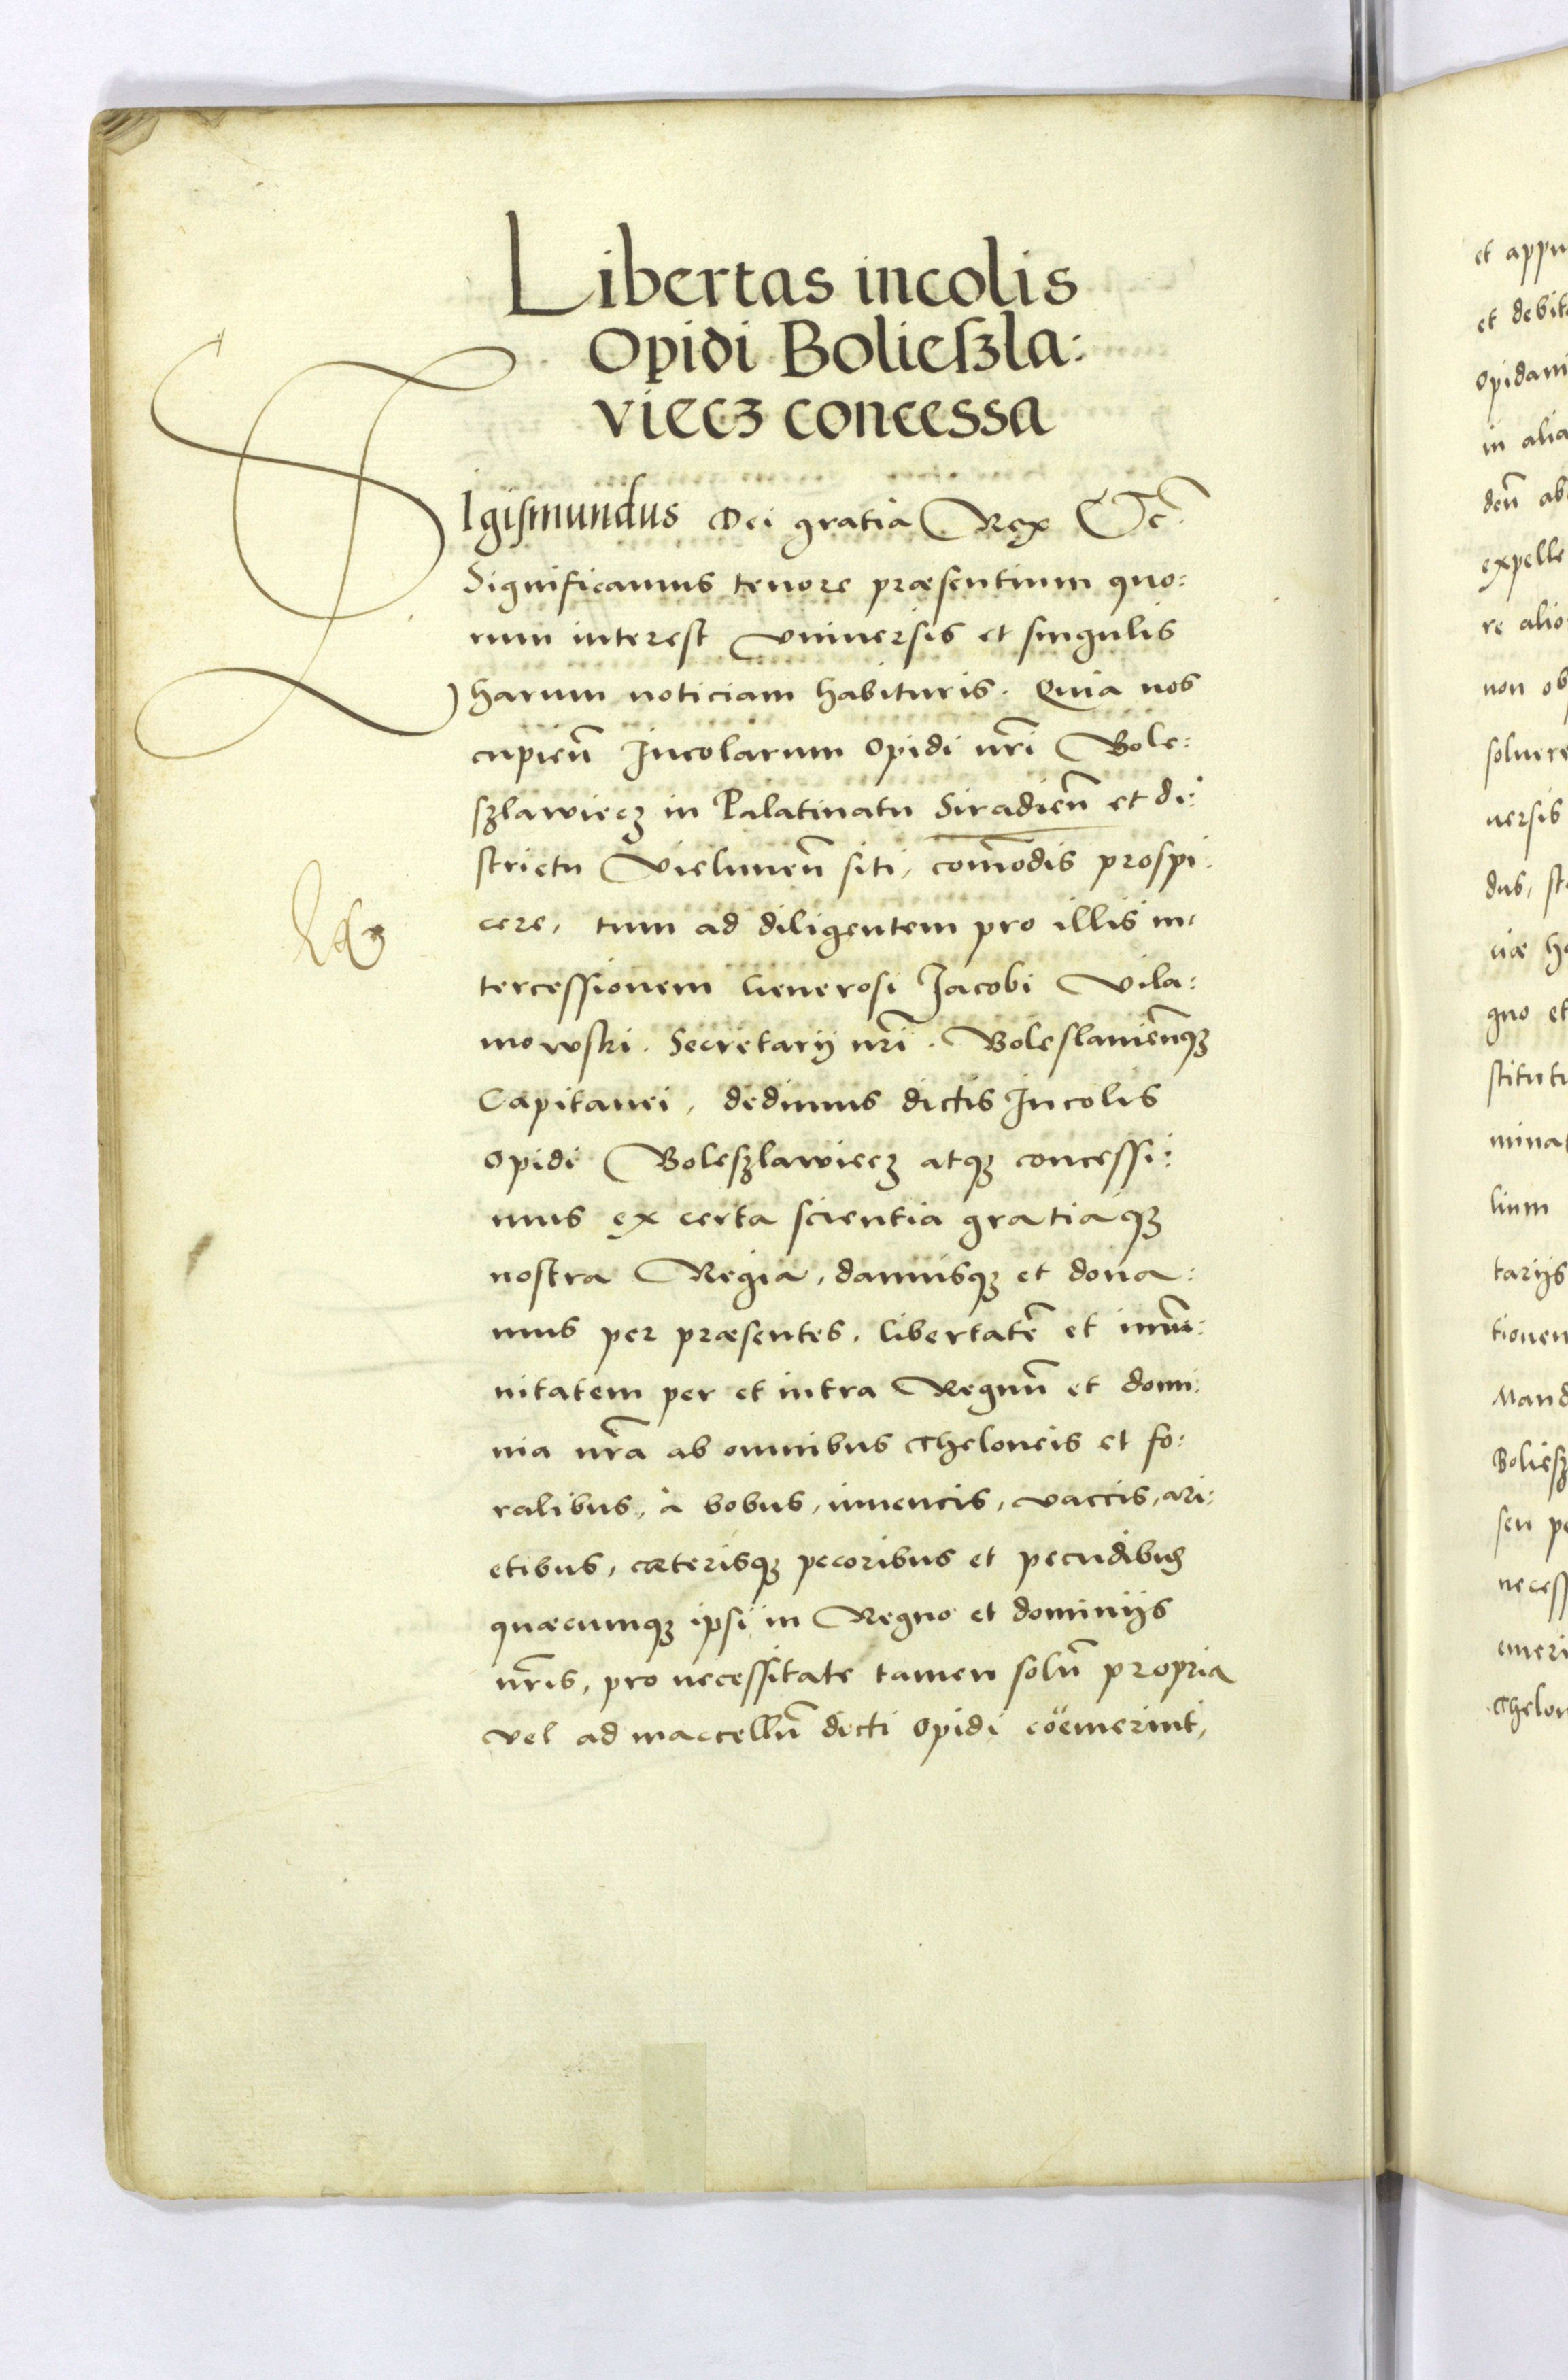 Libertas incolis
Opidi Bolieſzla:
viecz concessa
Sigiſmundus Dei gratia Rex Etc̃.
Significamus tenore præsentium quo:
rum interest Vniuersis et singulis
harum noticiam habituris. Quia nos
cupien̄ Incolarum Opidi nr̄i Bole:
ſzlawiecz in Palatinatu Siradien̄ et di:
strictu Vielunen̄ siti, com̄odis prospi:
cere, tum ad diligentem pro illis in:
terceſſionem Generosi Jacobi Vila:
mowski. Secretarij nr̄i. Boleslauien̄q3
Capitanei, dedimus dictis Incolis
Opidi Boleſzlawiecz atq3 conceſſi:
mus ex certa scientia gratiaq3
nostra Regia, damusq3 et dona:
mus per præsentes, libertatē et im̄u:
nitatem per et intra Regnū et domi:
nia nr̄a ab omnibus Theloneis et fo:
ralibus, à bobus, iuuencis, vaccis, ari:
etibus, cæterisq3 pecoribus et pecudibus
quæcumq3 ipsi in Regno et dominijs
nr̄is, pro neceſſitate tamen solū propria
vel ad maccellū dicti Opidi coëmerint,
et appu
et debit
Opidani
in alia
den̄ ab
expelle
re alio
non ob
soluere
uersis
dus, st
uæ ha
gno et
stitut
mina
lium
tarijs
tionem
Mand
Boliesz
seu pe
necess
emeri
Thelon